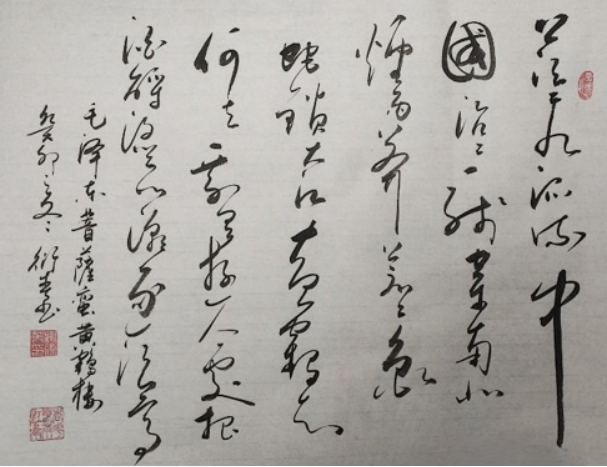 茫茫九派流中
國沉沉一线穿南北
煙雨莽苍苍龟
蛇鎖大江黄鹤知
何去剩有游人处把
酒酹滔滔心潮逐浪高
毛泽东菩薩蛮黄鹤楼
癸卯